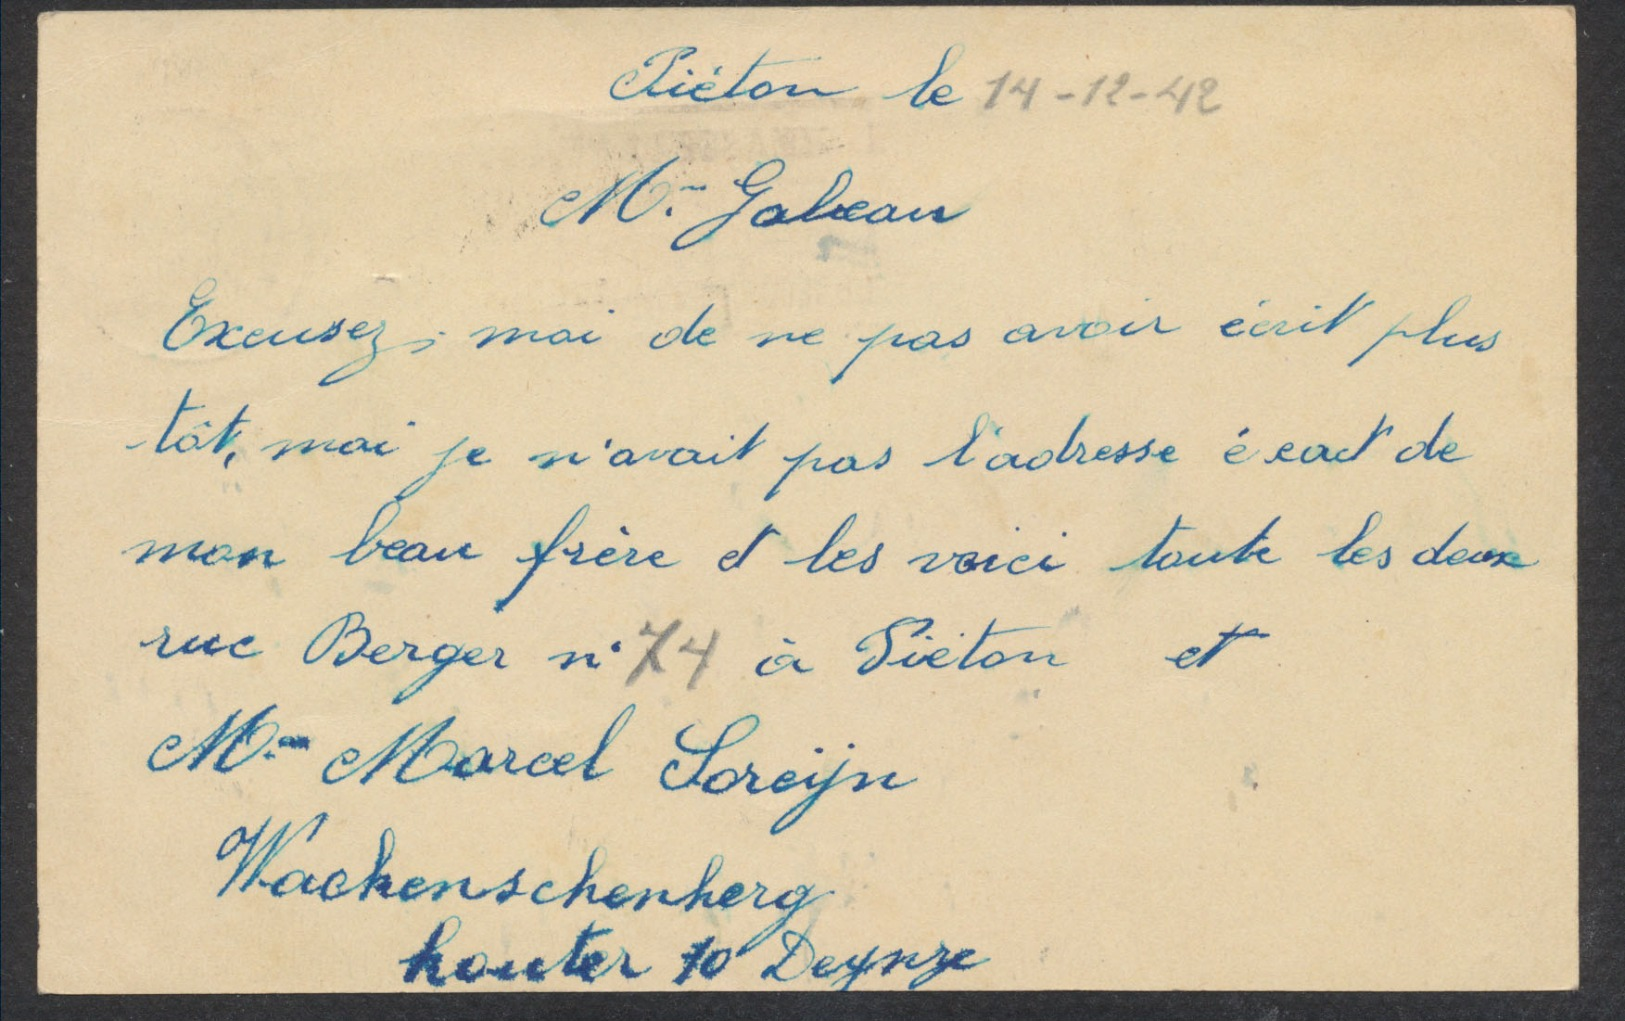 Piéton le 14-12-42
Mr Galeau
Excusez-moi de ne pas avoir écrit plus
tôt, moi je n'avait pas l'adresse éxact de
mon beau frère et les voici toute les deux
rue Berger n° 74 à Piéton et
Mr Marcel Loreijn
Wackenschenherg
kouter 10 Deynze